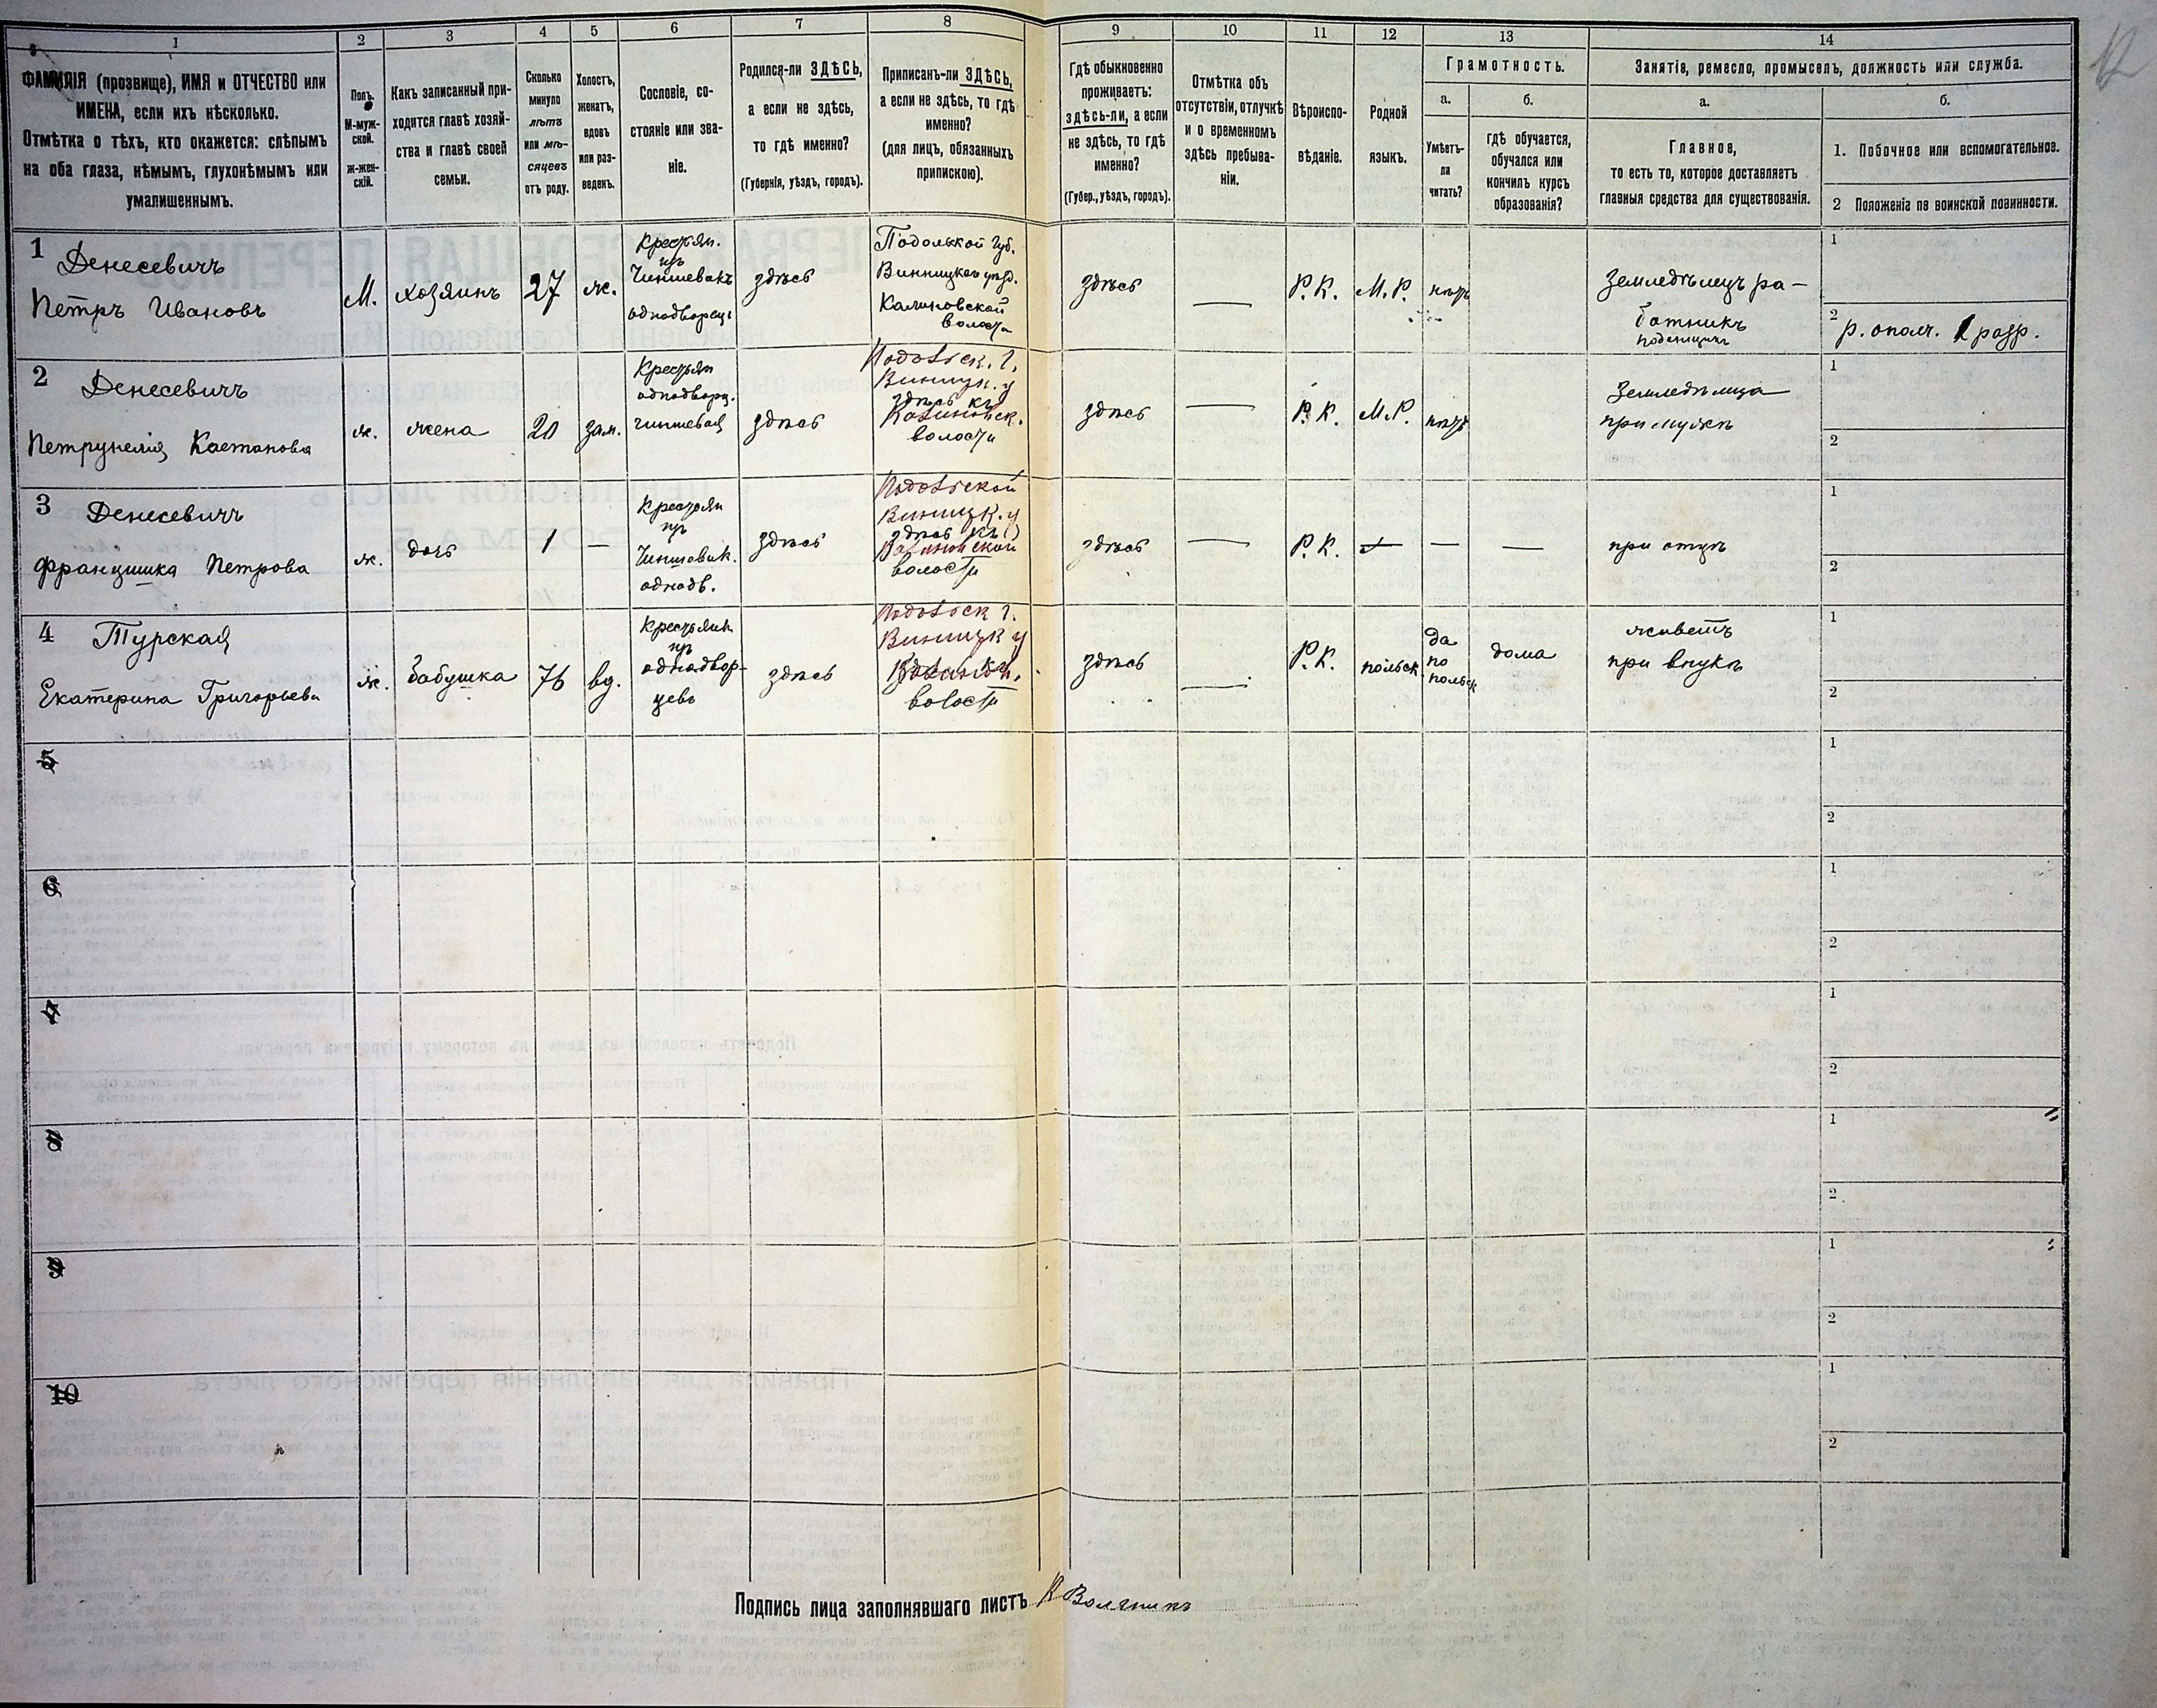 1 2 3 4 5 6 7 8 9 10 11 12 13 14
ФАМИЛІЯ (прозвище), ИМЯ и ОТЧЕСТВО или
ИМЕНА, если ихъ нѣсколько.
Отмѣтка о тѣхъ, кто окажется: слѣпымъ
на оба глаза, нѣмымъ, глухонѣмымъ или
умалишеннымъ.
Полъ.
М-муж-
ской.
ж-жен-
скій.
Какъ записанный при-
ходится главѣ хозяй-
ства и главѣ своей
семьи.
Сколько
минуло
лѣтъ
или мѣ-
сяцевъ
отъ роду.
Холостъ,
женатъ,
вдовъ
или раз-
веденъ.
Сословіе, со-
стояніе или зва-
ніе.
Родился-ли ЗДѢСЬ,
а если не здѣсь,
то гдѣ именно?
(Губернія, уѣздъ, городъ).
Приписанъ-ли ЗДѢСЬ,
а если не здѣсь, то гдѣ
именно?
(для лицъ, обязанныхъ
припискою).
Гдѣ обыкновенно
проживаетъ:
здѣсь-ли, а если
не здѣсь, то гдѣ
именно?
(Губер., уѣздъ, городъ).
Отмѣтка объ
отсутствіи, отлучкѣ
и о временномъ
здѣсь пребыва-
ніи.
Вѣроиспо-
вѣданіе.
Родной
языкъ.
Грамотность.
а.
Умѣетъ-
ли
читать?
б.
гдѣ обучается,
обучался или
кончилъ курсъ
образованія?
Занятіе, ремесло, промыселъ, должность или служба.
а.
Главное,
то есть то, которое доставляетъ
главныя средства для существованія.
б.
1. Побочное или вспомогательное.
2 Положеніе по воинской повинности.
1 Денесевичъ
Петръ Ивановъ
М.
хозяинъ
27
ж.
Крестьян.
изъ
Чиншевыхъ
однодворец.
здѣсь
Подольской губ.
Винницкаго уѣзд.
Калиновской
волости
здѣсь
—
Р. К.
М. Р.
нѣтъ
Земледѣлецъ ра-
ботникъ
поденщикъ
1
2 р. ополч. 1 разр.
2 Денесевичъ
Петрунелія Каетанова
ж.
жена
20
зам.
Крестьян
однодворц.
чиншевая
здѣсь
Подольск. г.
Винниц. у
здѣсь къ
Калиновск.
волости
здѣсь
—
Р. К.
М. Р.
нѣтъ
Земледѣлица
при мужѣ
1
2
3 Денесевичъ
Францишка Петрова
ж.
дочь
1
—
Крестьян
изъ
Чиншевик.
однодв.
здѣсь
Подольской
Винницк. у
здѣсь къ
Калиновской
волости
здѣсь
—
Р. К.
—
—
—
при отцѣ
1
2
4 Турская
Екатерина Григорьева
ж.
бабушка
76
вд.
Крестьянк
изъ
однодвор-
цевъ
здѣсь
Подольск г.
Винницк у
волости
здѣсь
—
Р. К.
польск.
да
по
польск
дома
живетъ
при внукѣ
1
2
5
1
2
6
1
2
7
1
2
8
1
2
9
1
2
10
1
2
Подпись лица заполнявшаго листъ